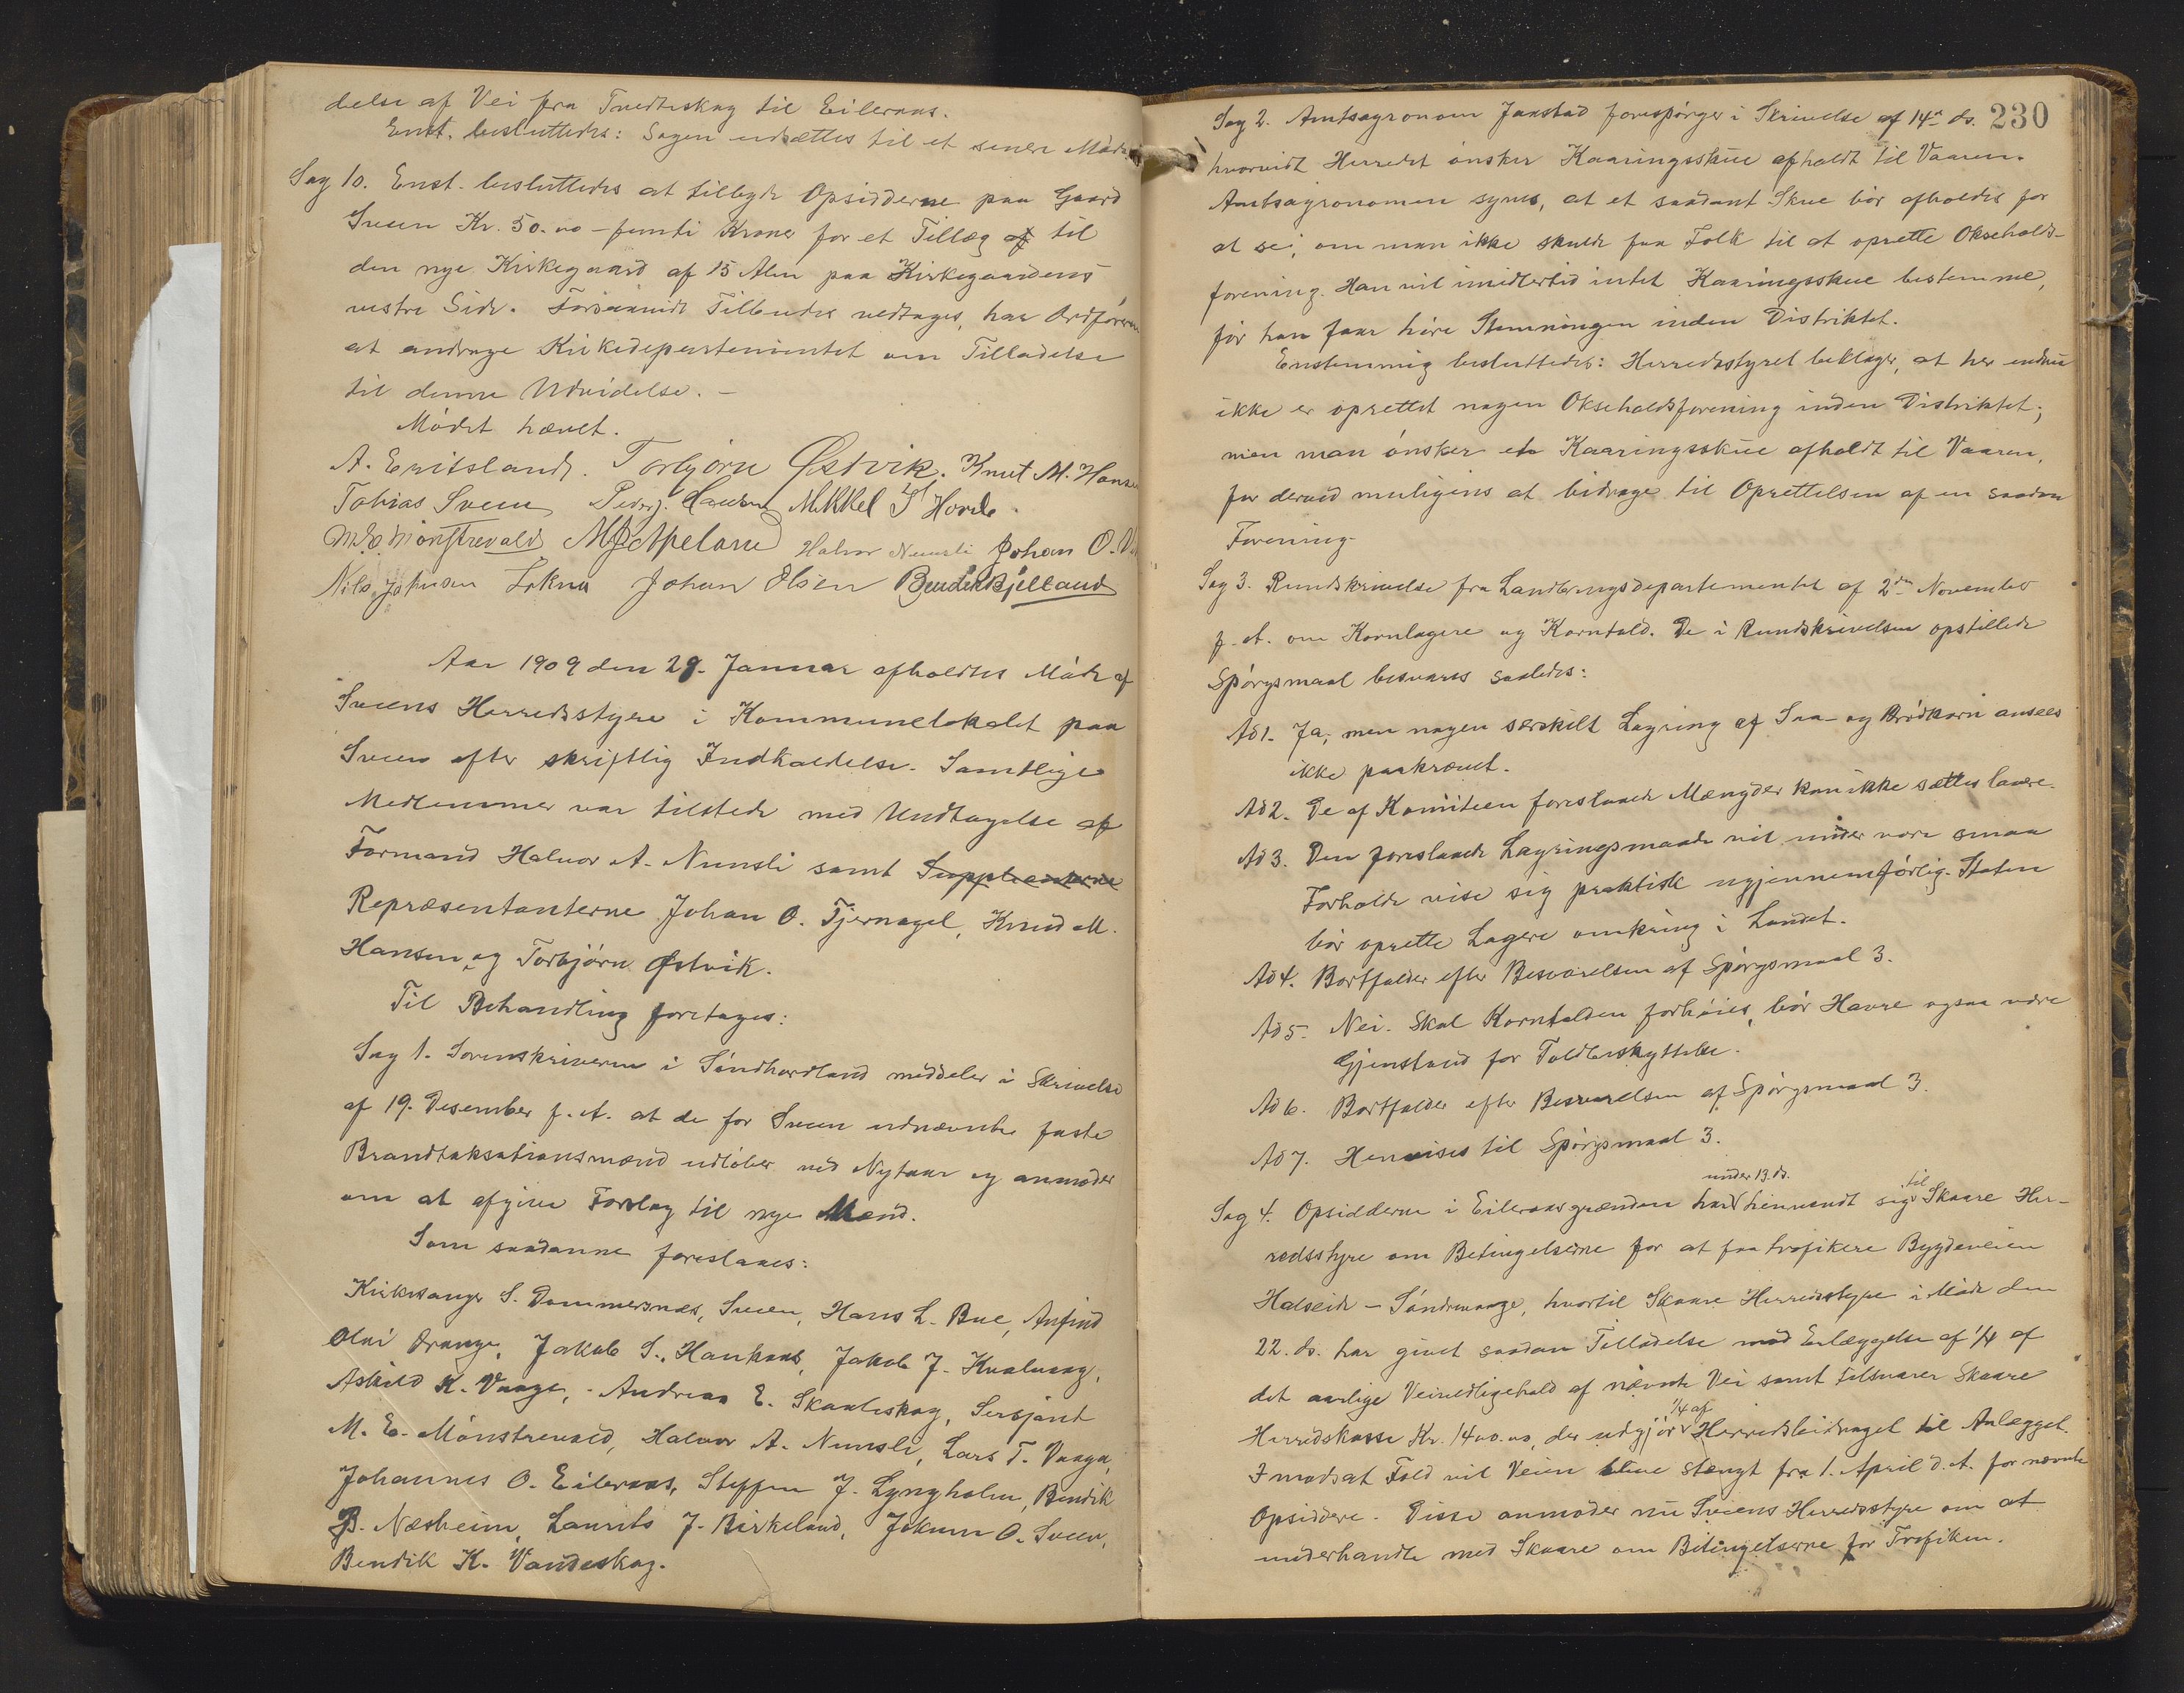 delse af Vei fra Tvedteskog til Eileraas.
Enst. besluttedes: Sagen udsættes til et senere Møde
Sag 10. Enst. besluttedes at tilbyde Opsidderne paa Gaard
Sveen Kr. 50.00 – femti Kroner for et Tillæg af til
den nye Kirkegaard af 15 Alen paa Kirkegaardens
vestre Side. Forsaavidt Tilbudet vedtages, har Ordføreren
at andrage Kirkedepartementet om Tilladelse
til denne Udvidelse. –
Mødet hævet.
A. Emitslandt. Torbjørn Østvik. Knut M. Hansen
Tobias Sveen Peder J. Mikkel S Hovde.
M. E. Mønstrevald M J Apeland Halvor Nunsli Johan O.
Nils Johnsen Lokna Johan Olsen Bendik Kjelland
Aar 1909 den 29. Januar afholdtes Møde af
Sveens Herredsstyre i Kommunelokalet paa
Sveen efter skriftlig Indkaldelse. Samtlige
Medlemmer var tilstede med Undtagelse af
Formand Halvor A. Nunsli samt Suppleanterne
Repræsentanterne Johan O. Tjernagel, Knud M.
Hansen og Torbjørn Østvik.
Til Behandling foretages:
Sag 1. Sorenskriveren i Søndhordland meddeler i Skrivelse
af 19. Desember f. A. at de for Sveen udnævnte faste
Brandtaksationsmænd udløber ved Nytaar og anmoder
om at afgive Forslag til nye Mænd.
Som saadanne foreslaaes:
Kirkesanger S. Dommersnes, Sveen, Hans L. Bue, Anfind
Olai Ørange, Jakob S. Haukaas, Jakob J. Kvalvaag,
Askild K. Vaage, Andreas E. Skaaleskog, Sersjant
M. E. Mønstrevald, Halvor A. Nunsli, Lars T. Vaaga,
Johannes O. Eileraas, Steffen J. Lyngholm, Bendik
B. Næsheim, Laurits J. Birkeland, Jokum O. Sveen,
Bendik K. Vandeskog.
230
Sag 2. Amtsagronom Jaastad forespørger i Skrivelse af 14de ds.
hvorvidt Herredet ønsker Kaaringsskue afholdt til Vaaren.
Amtsagronomen synes, at et saadant Skue bør afholdes for
at se, om man ikke skulde faa Folk til at oprette Oksehold-
forening. Han vil imidlertid intet Kaaringsskue bestemme,
før han faar høre Stemningen inden Distriktet.
Enstemmig besluttedes: Herredsstyret beklager, at her endnu
ikke er oprettet nogen Okseholdsforening inden Distriktet;
men man ønsker et Kaaringsskue afholdt til Vaaren,
for derved muligens at bidrage til Oprettelsen af en saadan
Forening.
Sag 3. Rundskrivelse fra Landbrugsdepartementet af 2den November
f. A. om Kornlagere og Korntold. De i Rundskrivelsen opstillede
Spørgsmaal besvares saaledes:
Ad 1. Ja, men nogen særskilt Lagring af Saa- og Brødkorn ansees
ikke paakrævet.
Ad 2. De af Komiteen foreslaaede Mængder kan ikke sættes lavere.
Ad 3. Den foreslaaede Lagringsmaade vil under vore smaa
Forholde vise sig praktisk ugjennemførlig. Staten
bør oprette Lagere omkring i Landet.
Ad 4. Bortfalder efter Besvarelsen af Spørgsmaal 3.
Ad 5. Nei. Skal Korntolden forhøies, bør Havre ogsaa være
Gjenstand for Toldbeskyttelse.
Ad 6. Bortfalder efter Besvarelsen af Spørgsmaal 3.
Ad 7. Henvises til Spørgsmaal 3.
under 13. ds. til
Sag 4. Opsidderne i Eileraasgrænden har henvendt sig Skaare Her-
redsstyre om Betingelserne for at faa trafikere Bygdeveien
Halseide – Søndrevaage, hvortil Skaare Herredsstyre i Møde den
22. ds. har givet saadan Tilladelse mod Erlæggelse af 1/4 af
det aarlige Veivedligehold af nævnte Vei samt tilsvarer Skaare
1/4 af
Herredskasse Kr. 1400.00, der udgjør Herredsbidraget til Anlægget.
I modsat Fald vil Veien blive stængt fra 1. April d. A. for nævnte
Opsiddere. Disse anmoder nu Sveens Herredsstyre om at
underhandle med Skaare om Betingelserne for Trafiken.